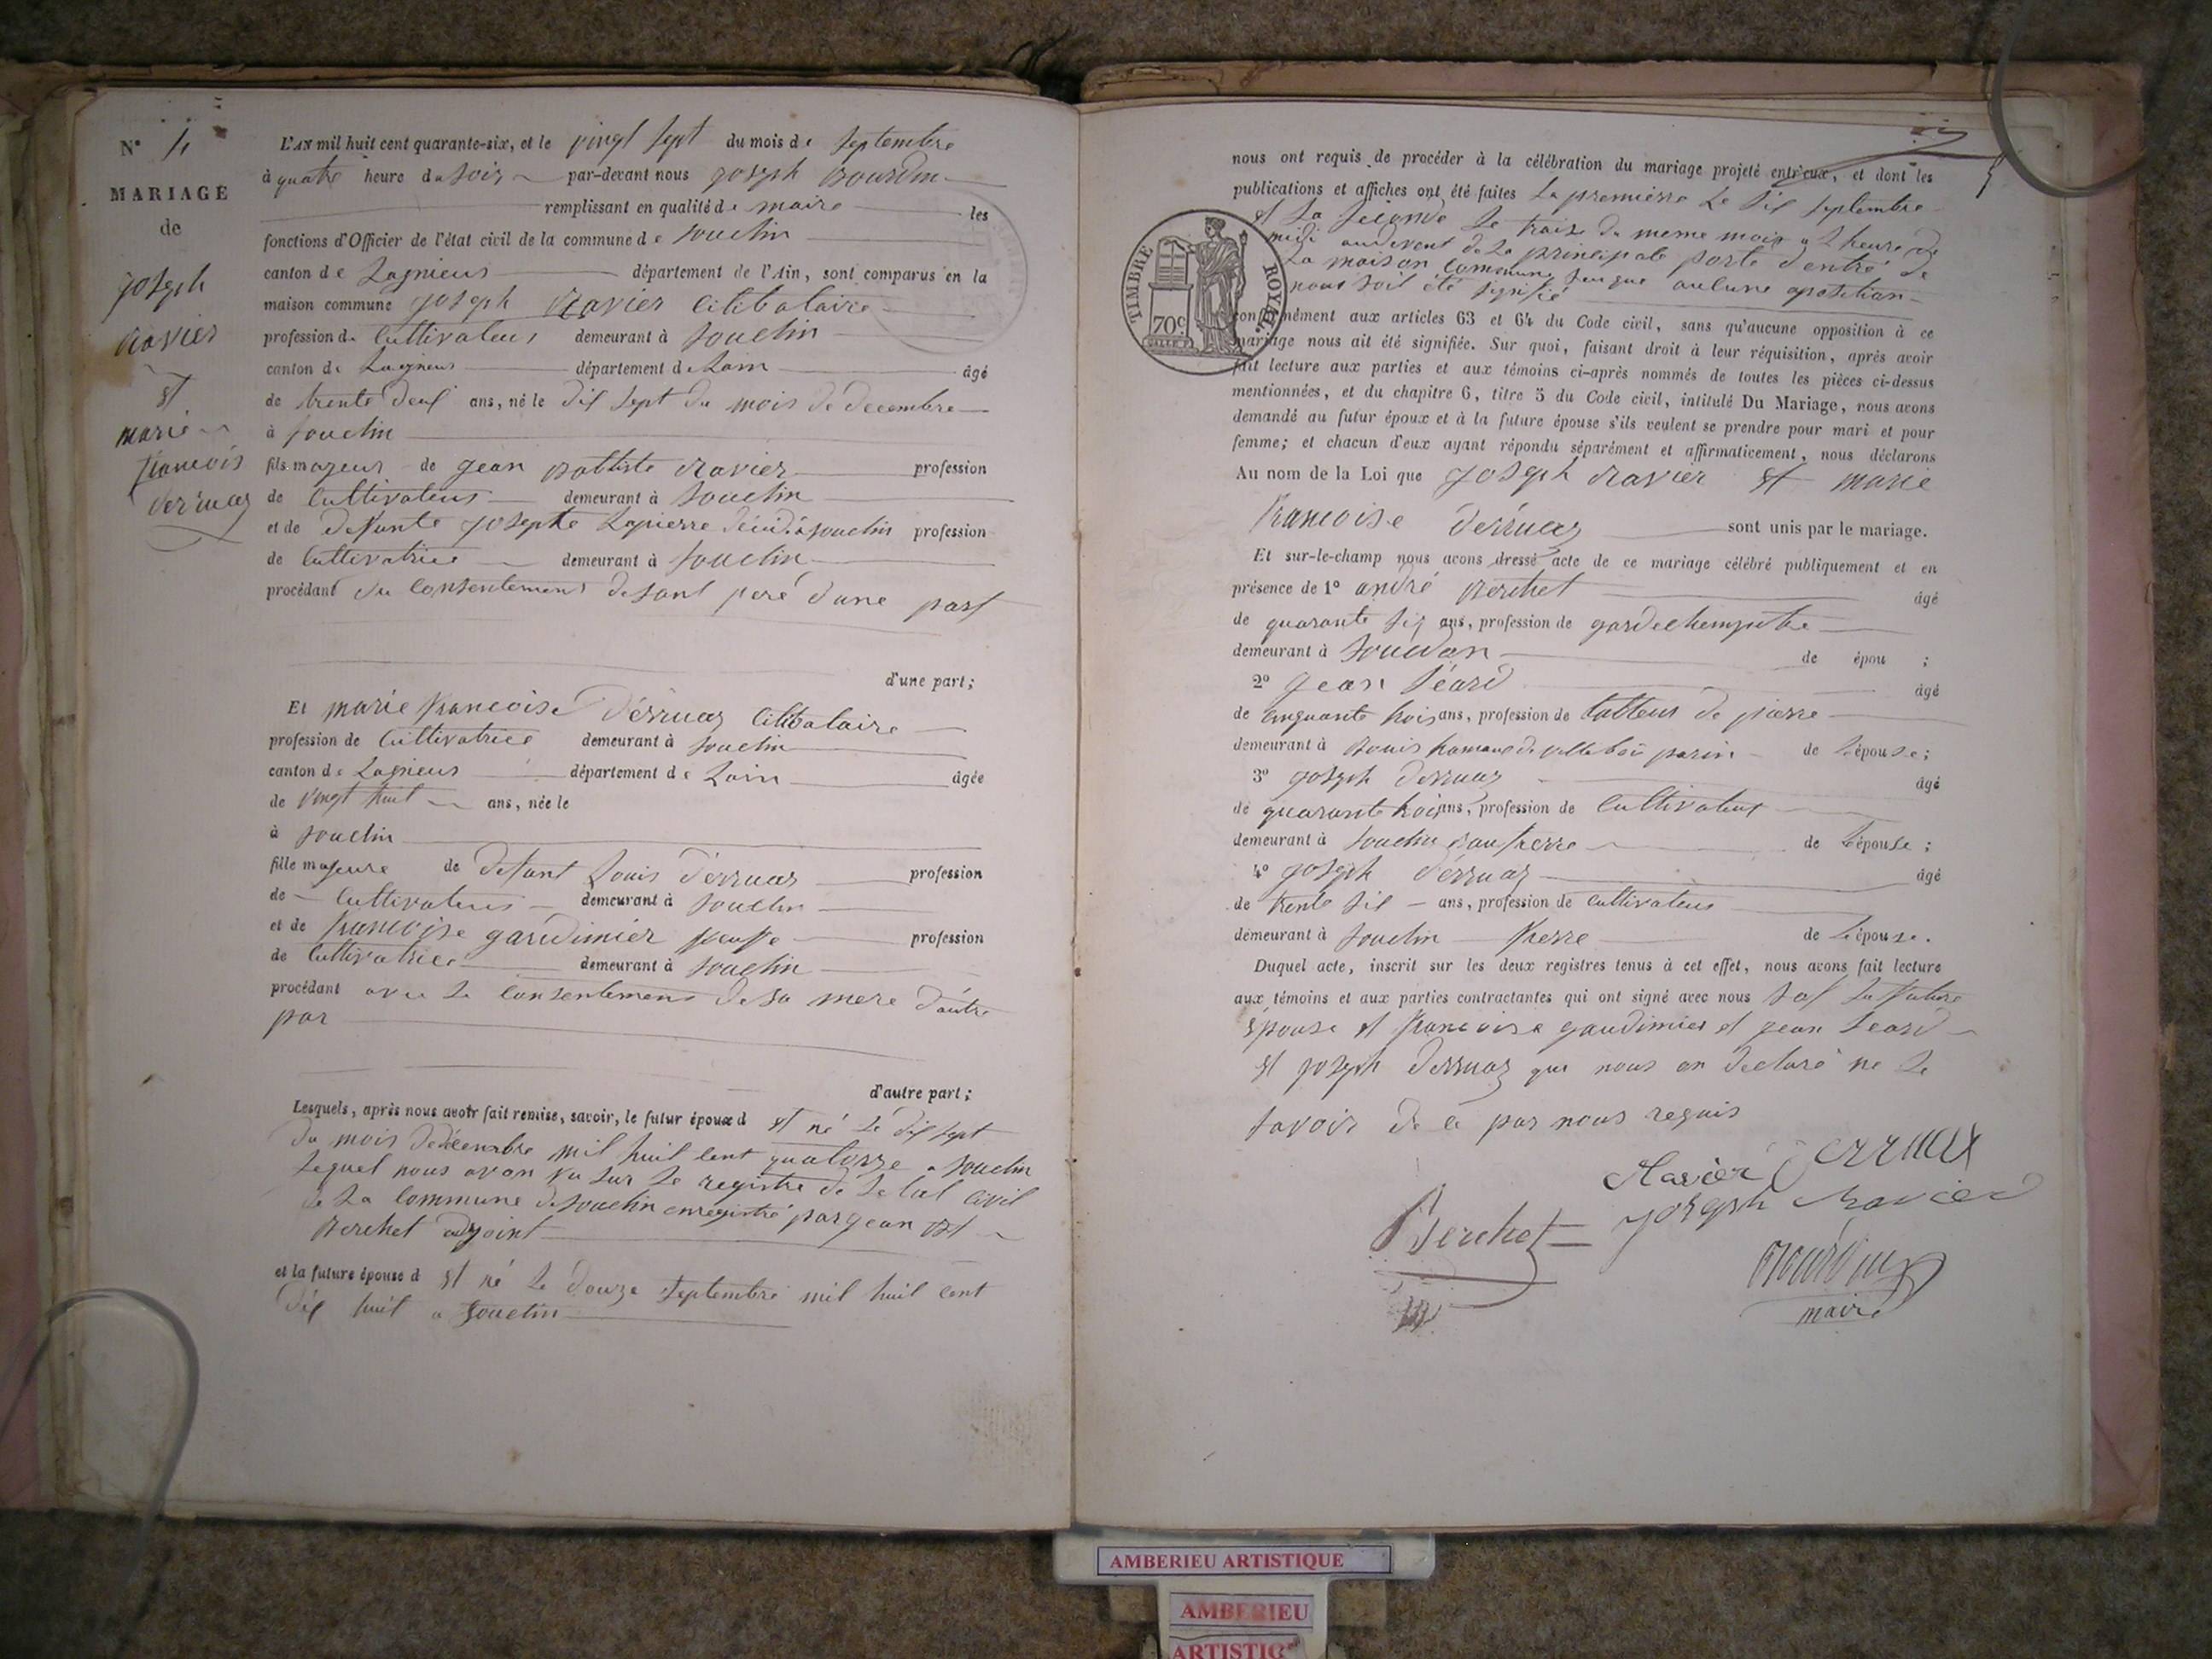 N° 4
MARIAGE
de
joseph
ravier
et
marie
francois
derruaz
L'AN mil huit cent quarante-six, et le vingt sept du mois de septembre
à quatre heure du soir par-devant nous joseph Bourdin
remplissant en qualité de maire les
fonctions d'Officier de l'état civil de la commune de souclin
canton de Lagnieus département de l'Ain, sont comparus en la
maison commune joseph Ravier Celibataire
profession de Cultivateus demeurant à souclin
canton de Lagnieus département de Lain âgé
de trente deux ans, né le dix sept du mois de decembre
à souclin
fils majeur de jean Battiste ravier profession
de Cultivateus demeurant à souclin
et de defunte josephte Lapierre décidé a souclin profession
de Cultivatrice demeurant à souclin
procédant du Consentement de sont peré dune part
d'une part;
Et marie francoise Dérruaz Celibataire
profession de Cultivatrice demeurant à souclin
canton de Lagnieus département de Lain âgée
de vingt huit ans, née le
à souclin
fille majeure de defunt Louis dérruaz profession
de Cultivateus demeurant à souclin
et de francoise gaudimier veuve profession
de Cultivatrice demeurant à souclin
procédant avec le Consentement de sa mere dautre
par
d'autre part;
Lesquels, après nous avoir fait remise, savoir, le futur époux d et né le dix sept
du mois dedecembre mil huit cent quatorze a souclin
lequel nous avon vu sur le registre de letat Civil
de La Commune de souclin enregistré par jean Bt
Berchet adjoint
et la future épouse d et né le douze septembre mil huit cent
dix huit a souclin
nous ont requis de procéder à la célébration du mariage projeté entr'eux, et dont les
publications et affiches ont été faites La premiere le six septembre
et La seconde le traize du meme mois a 2 heure de
midi audevent de La principale porte d'entré de
La maison Commune sen que aucune oposition
nous soit eté signifié
TIMBRE ROYAL.
70c
conformément aux articles 63 et 64 du Code civil, sans qu'aucune opposition à ce
mariage nous ait été signifiée. Sur quoi, faisant droit à leur réquisition, après avoir
fait lecture aux parties et aux témoins ci-après nommés de toutes les pièces ci-dessus
mentionnées, et du chapitre 6, titre 5 du Code civil, intitulé Du Mariage, nous avons
demandé au futur époux et à la future épouse s'ils veulent se prendre pour mari et pour
femme; et chacun d'eux ayant répondu séparément et affirmativement, nous déclarons
Au nom de la Loi que joseph ravier et marie
francoise derruaz sont unis par le mariage.
Et sur-le-champ nous avons dressé acte de ce mariage célébré publiquement et en
présence de 1° andré Berchet âgé
de quarante six ans, profession de
demeurant à de épou ;
2° jean séard âgé
de cinquante trois ans, profession de talleur de pierre
demeurant à de Lépouse;
3° joseph derruaz âgé
de quarante trois ans, profession de Cultivateur
demeurant à souclin de Lépouse;
4° joseph dérruaz âgé
de trente six ans, profession de Cultivateus
demeurant à souclin frerre de Lépouse.
Duquel acte, inscrit sur les deux registres tenus à cet effet, nous avons fait lecture
aux témoins et aux parties contractantes qui ont signé avec nous sof La future
épouse et francoise gaudimier et jean seard
et joseph derruaz qui nous on declaré ne le
savoir de ce par nous requis
Ravier Derruaz
joseph Ravier
Berchet
Bourdin
maire
AMBERIEU ARTISTIQUE
AMBERIEU
ARTISTIQ